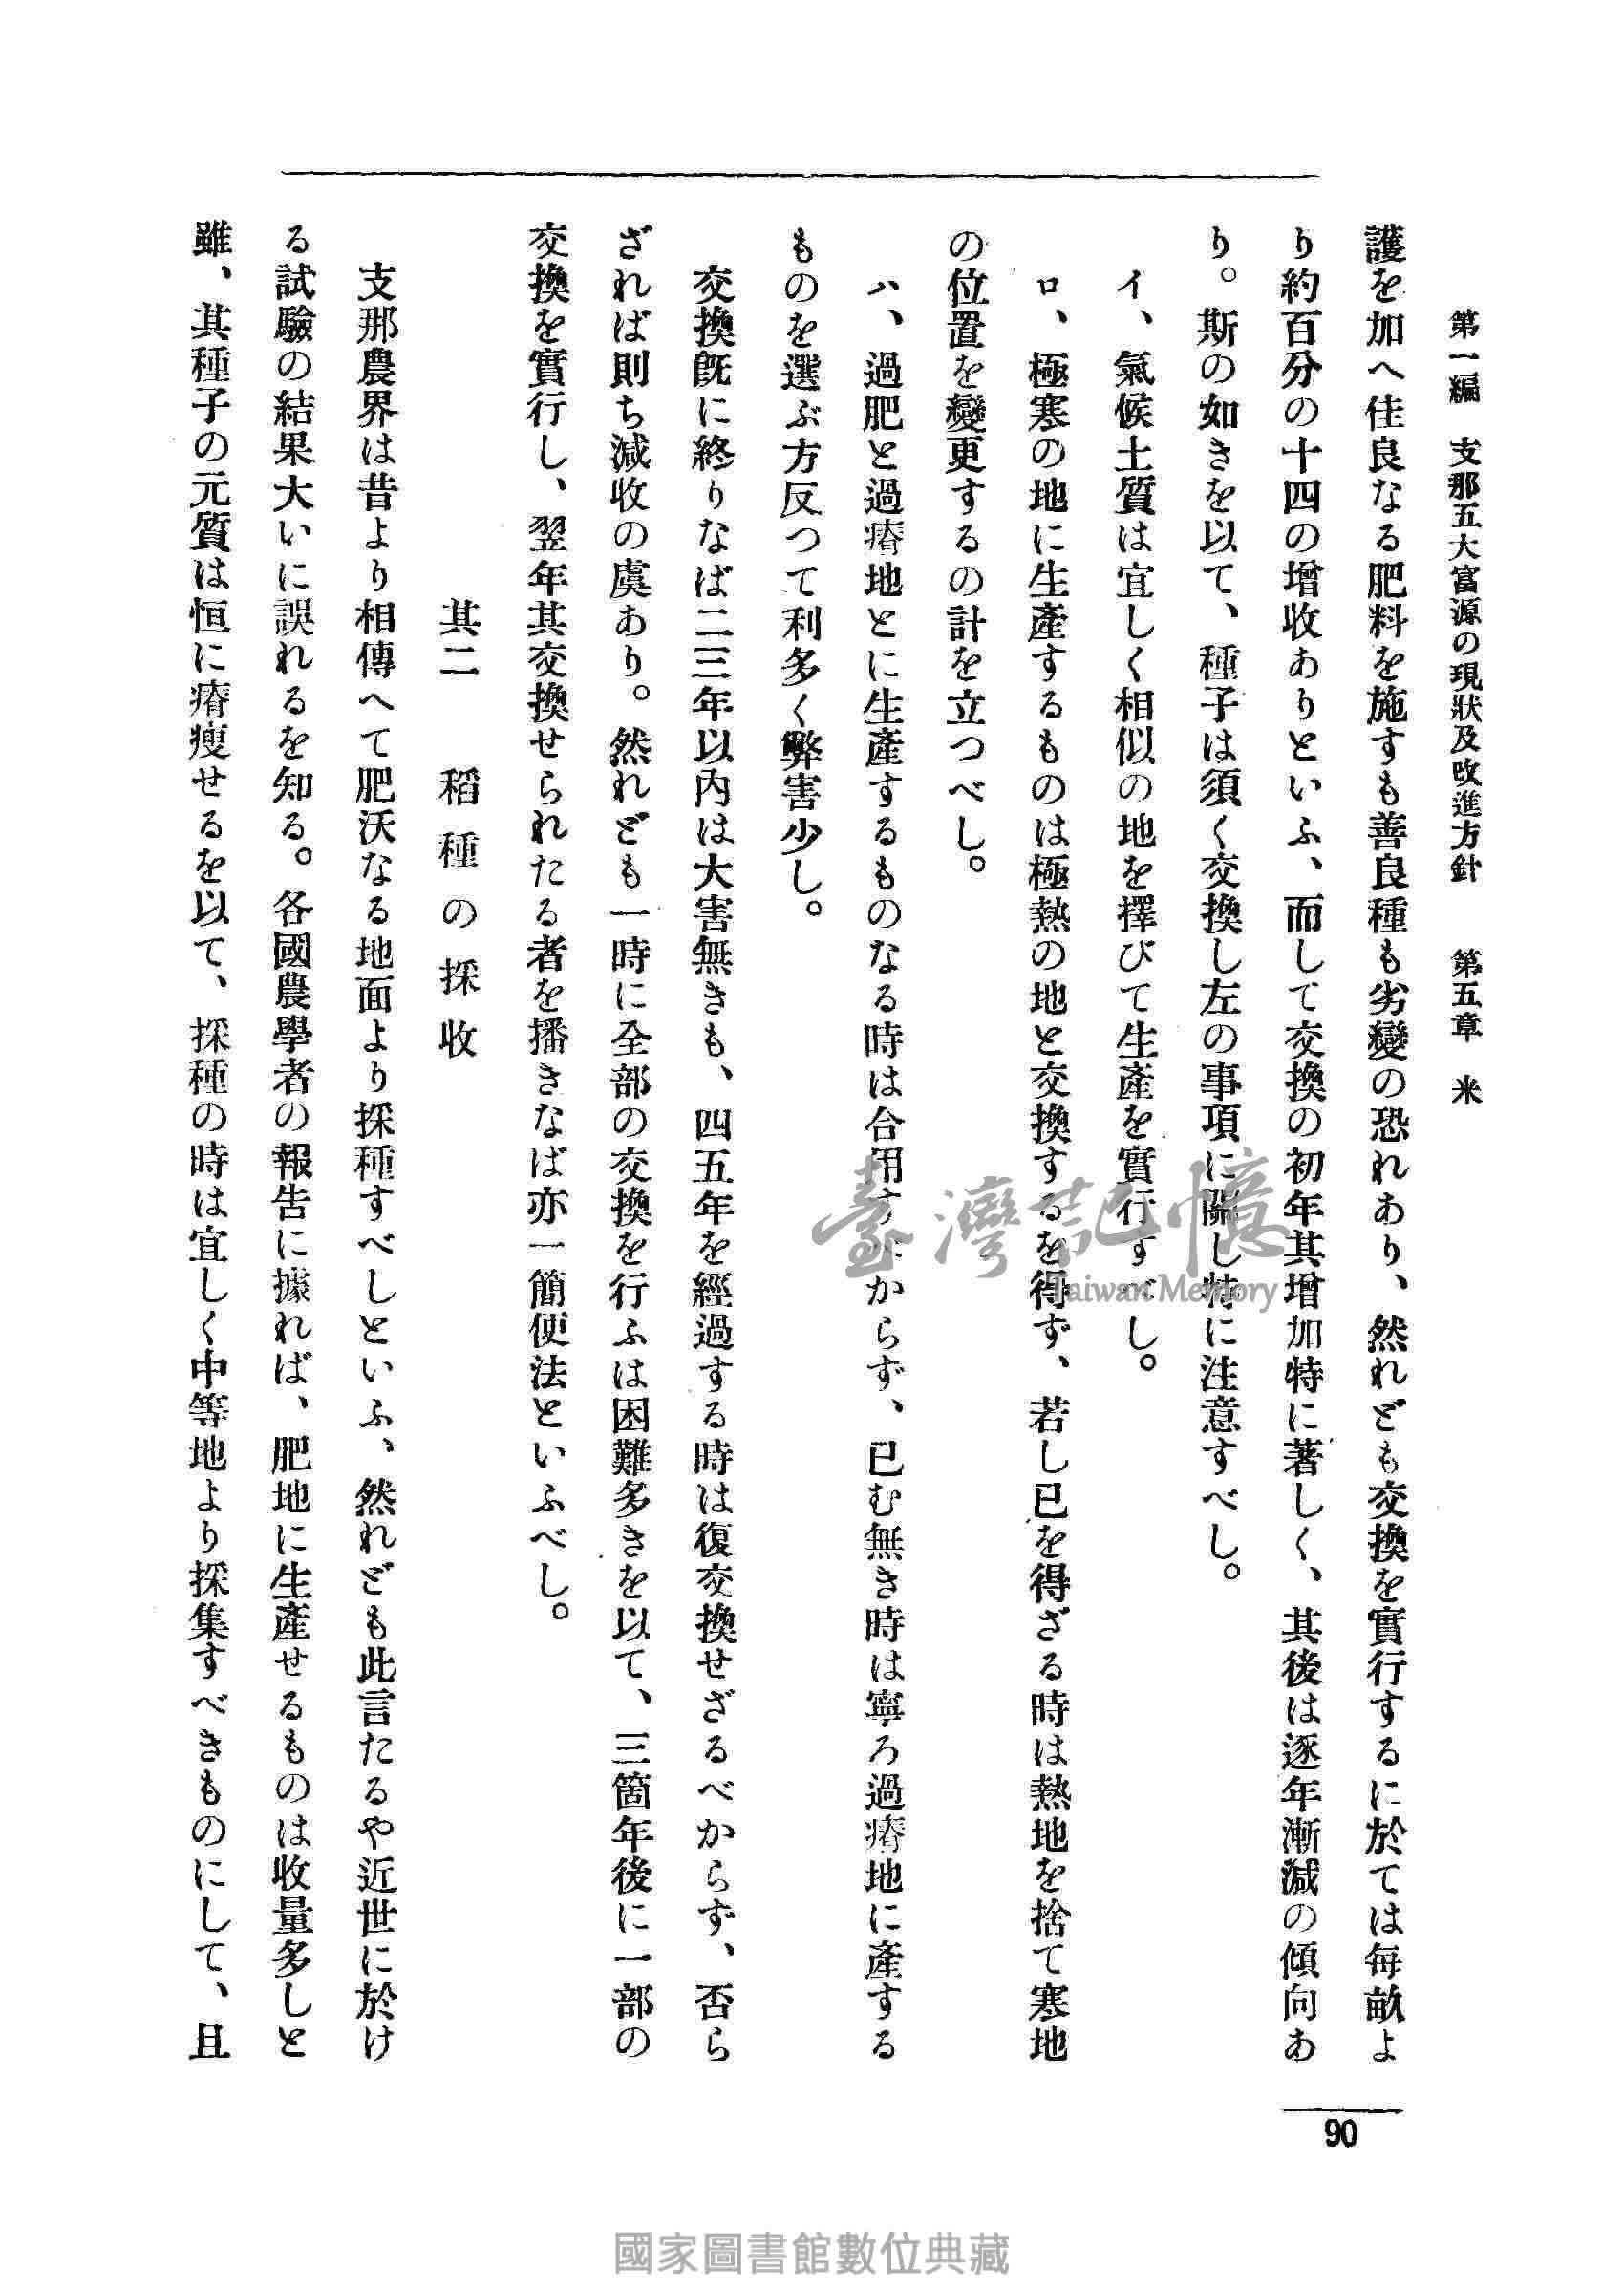 第一編　支那五大富源の現狀及改進方針　第五章　米
護を加へ佳良なる肥料を施すも善良種も劣變の恐れあり、然れども交換を實行するに於ては每畝よ
り約百分の十四の增收ありといふ、而して交換の初年其增加特に著しく、其後は逐年漸減の傾向あ
り。斯の如きを以て、種子は須く交換し左の事項に關し特に注意すべし。
イ、氣候土質は宜しく相似の地を擇びて生產を實行すべし。
ロ、極寒の地に生產するものは極熱の地と交換するを得ず、若し已を得ざる時は熱地を捨て寒地
の位置を變更するの計を立つべし。
ハ、過肥と過瘠地とに生產するものなる時は合用すべからず、已む無き時は寧ろ過瘠地に產する
ものを選ぶ方反つて利多く弊害少し。
交換既に終りなば二三年以內は大害無きも、四五年を經過する時は復交換せざるべからず、否ら
ざれば則ち減收の虞あり。然れども一時に全部の交換を行ふは困難多きを以て、三箇年後に一部の
交換を實行し、翌年其交換せられたる者を播きなば亦一簡便法といふべし。
其二　稻種の採收
支那農界は昔より相傳へて肥沃なる地面より採種すべしといふ、然れども此言たるや近世に於け
る試驗の結果大いに誤れるを知る。各國農學者の報告に據れば、肥地に生產せるものは收量多しと
雖、其種子の元質は恒に瘠瘦せるを以て、採種の時は宜しく中等地より採集すべきものにして、且
90
臺灣記憶
Taiwan Memory
國家圖書館數位典藏